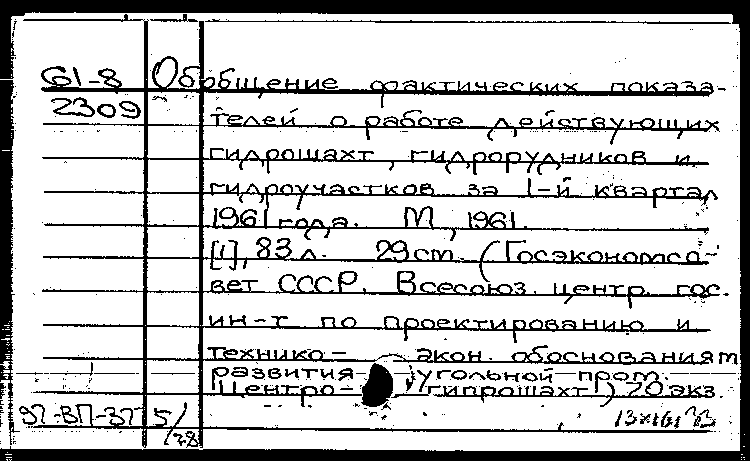 61-8 Обобщение фактических показа-
2309 телей о работе действующих
гидрошахт, гидрорудников и
гидроучастков за I-й квартал
1961 года. М, 1961.
[1], 83 л. 29 см (Госэкономсо-
вет СССР. Всесоюз. центр. гос.
ин-т по проектированию и
технико- экон. обоснованиям
развития угольной пром.
"Центро- гипрошахт") 70 экз.
92-ВП-37 5/78